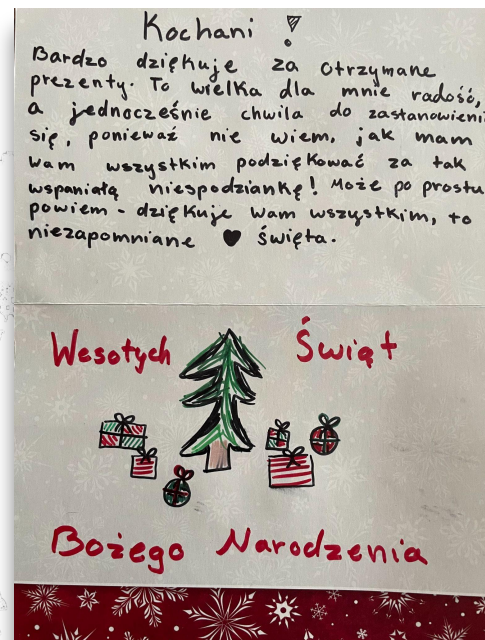 Kochani !
Bardzo dziękuje za otrzymane
prezenty. To wielka dla mnie radość,
a jednocześnie chwila do zastanowieni
się, ponieważ nie wiem, jak mam
wam wszystkim podziękować za tak
wspaniałą niespodziankę! Może po prostu
powiem - dziękuje wam wszystkim, to
niezapomniane ♥ święta.
Wesołych Świąt
Bożego Narodzenia